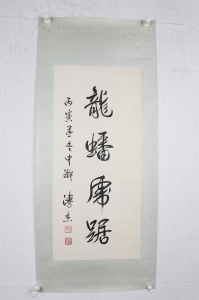 龍蟠虎踞
丙寅季冬中澣 溥杰